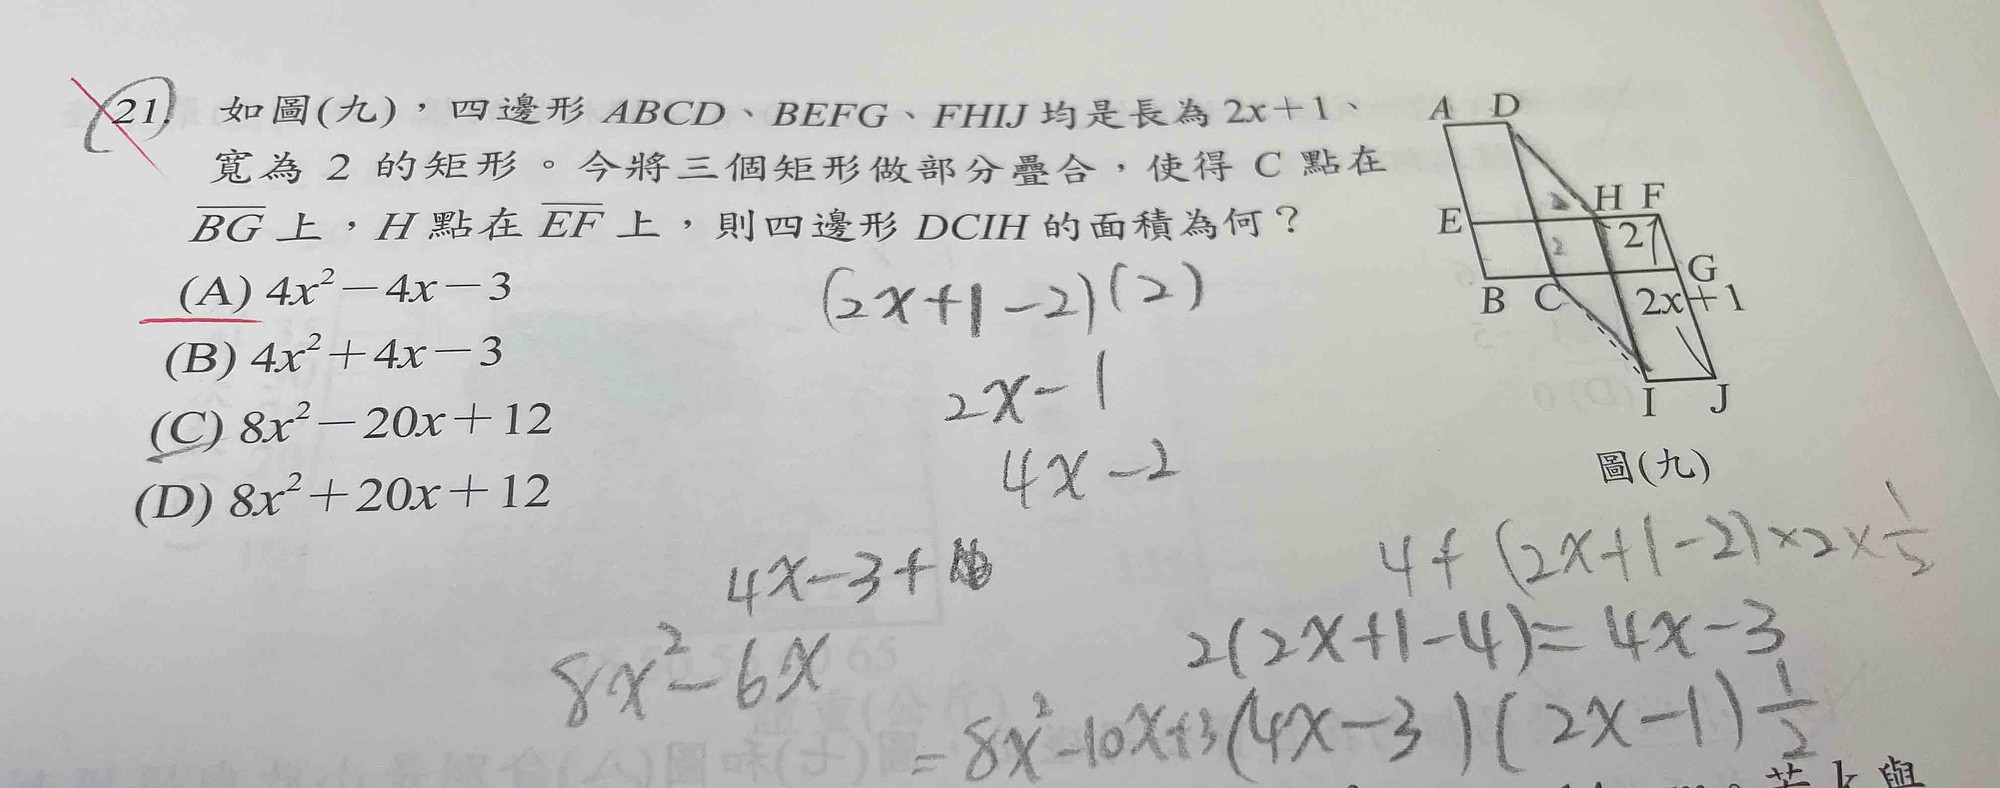 21. 如圖(九)，四邊形 ABCD、BEFG、FHIJ 均是長為 2x＋1、
寬為 2 的矩形。今將三個矩形做部分疊合，使得 C 點在
B͞G͞ 上，H 點在 E͞F͞ 上，則四邊形 DCIH 的面積為何？
(A) 4x²－4x－3
(B) 4x²＋4x－3
(C) 8x²－20x＋12
(D) 8x²＋20x＋12
A D
H F
E 2
2
G
B C 2x＋1
I J
圖(九)
(2x+1-2)(2)
2x-1
4x-2
4+(2x+1-2)×2×1/2
4x-3+
2(2x+1-4)=4x-3
8x²-6x
=8x²-10x+3(4x-3)(2x-1)1/2